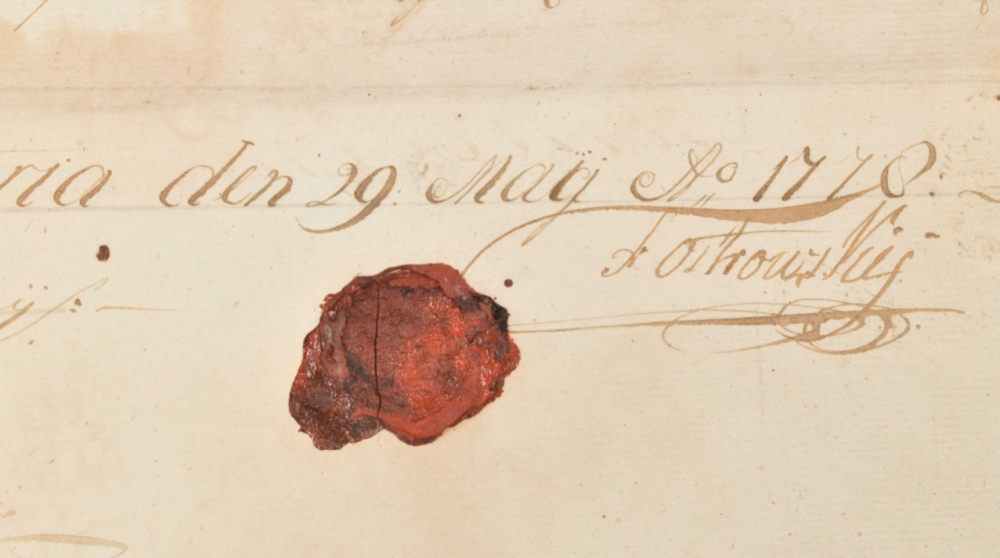 ria den 29 Maÿ Aº 1778.
Ostrowskij